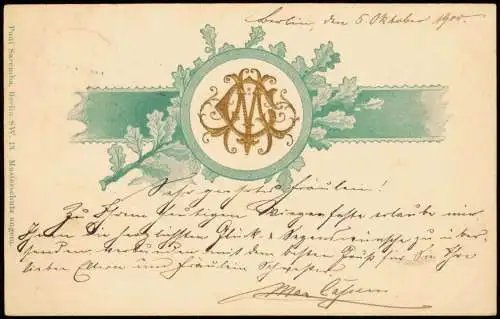 Berlin, den 5 Oktober 1900.
Paul Saremba, Berlin SW. 13. Musterschutz angem.
Sehr geehrtes Fräulein!
Zu Ihrem heutigen Wiegenfeste erlaube mir
Ihnen die herzlichsten Glück & Segenswünsche zu über-
senden verbunden mit dem besten Gruß für Sie Ihre
lieben Eltern und Fräulein Schwester.
Max